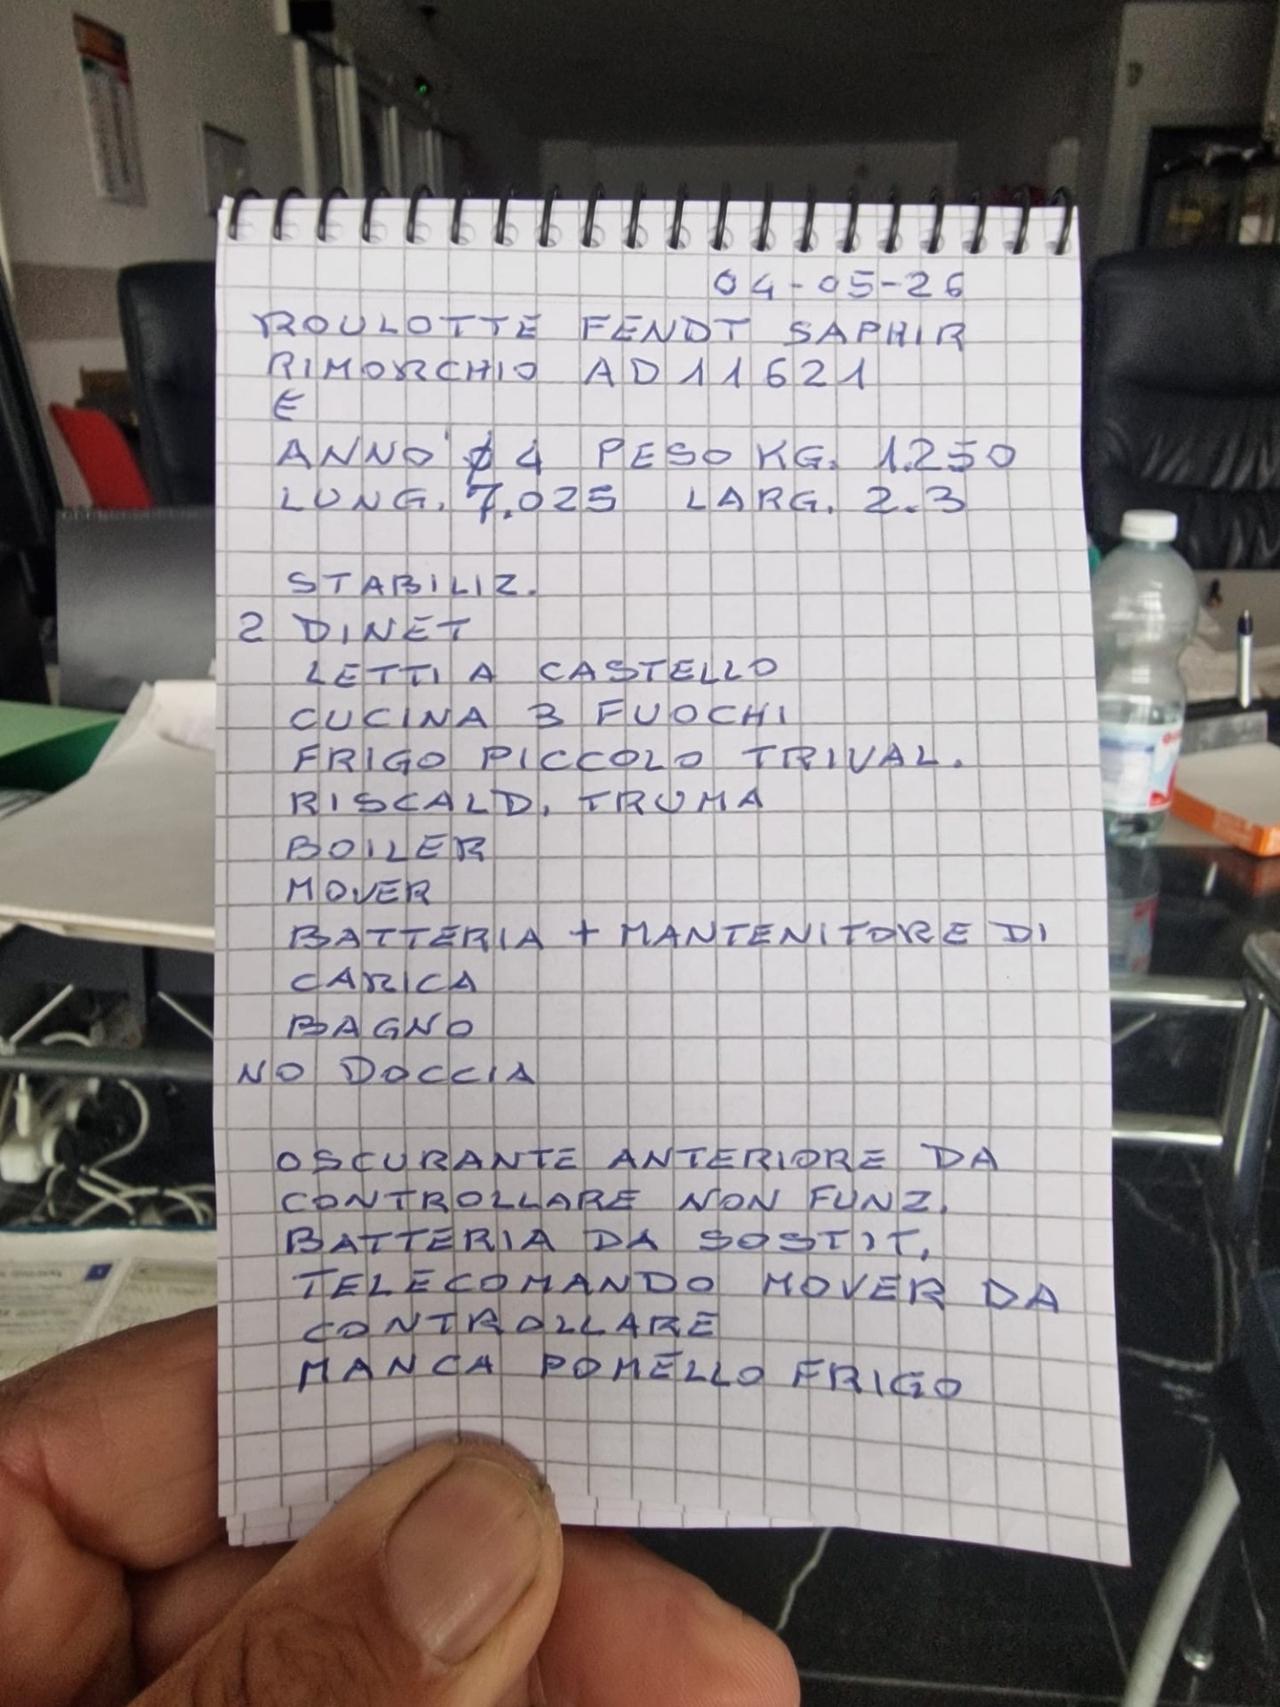 04-05-26
ROULOTTE FENDT SAPHIR
RIMORCHIO AD11621
E
ANNO 04 PESO KG. 1.250
LUNG. 7.025 LARG. 2.3
STABILIZ.
2 DINET
LETTI A CASTELLO
CUCINA 3 FUOCHI
FRIGO PICCOLO TRIVAL.
RISCALD. TRUMA
BOILER
MOVER
BATTERIA + MANTENITORE DI
CARICA
BAGNO
NO DOCCIA
OSCURANTE ANTERIORE DA
CONTROLLARE NON FUNZ.
BATTERIA DA SOSTIT.
TELECOMANDO MOVER DA
CONTROLLARE
MANCA POMELLO FRIGO